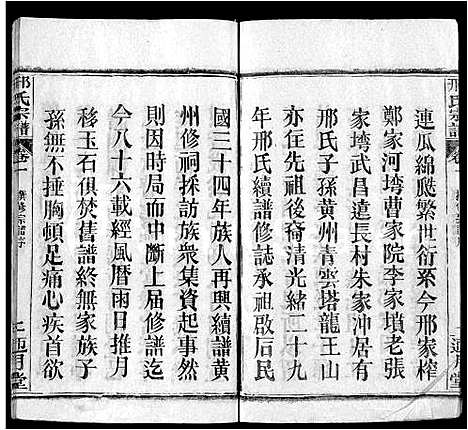 邢氏宗譜
連瓜綿瓞繁世衍系今邢家榨
鄭家河塆曹家院李家墳老張
家塆武昌遠長村朱家冲居有
邢氏子孫黃州青雲塔龍王山
亦在先祖後裔清光緒二十九
年邢氏續譜修誌承祖啟后民
國三十四年族人再興續譜黃
州修祠採訪族眾集資起事然
則因時局而中斷上屆修譜迄
今八十六載經風曆雨日推月
移玉石俱焚舊譜終無家族子
孫無不捶胸頓足痛心疾首欲
邢氏宗譜
卷一